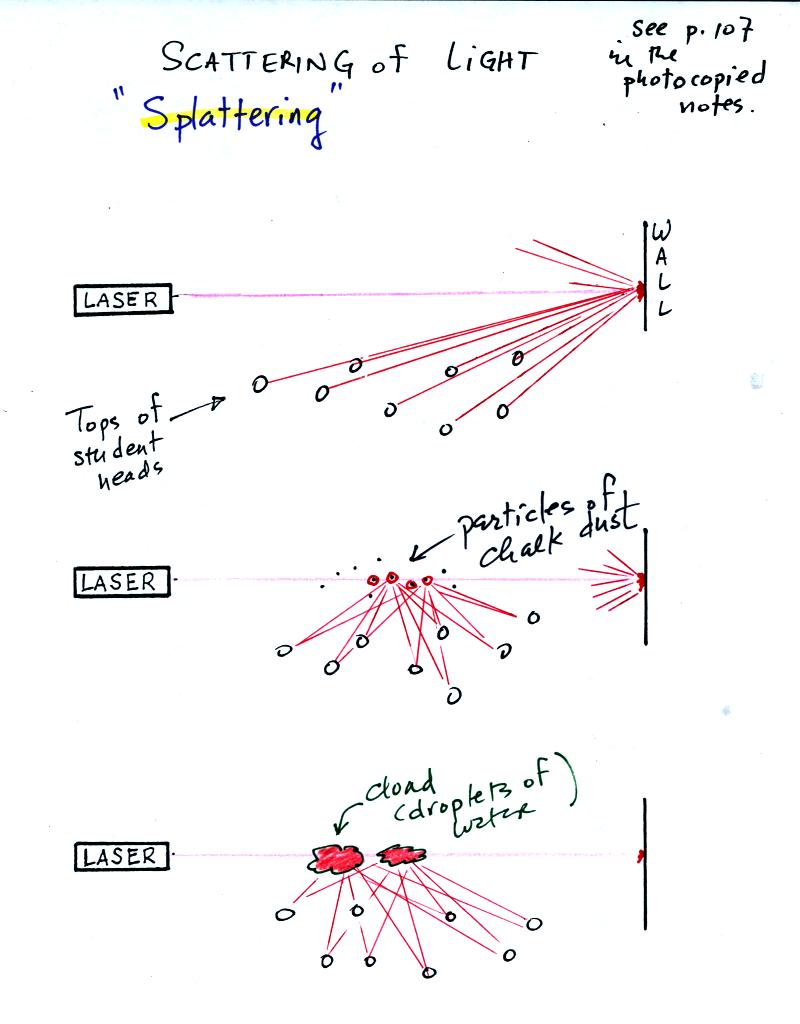 SCATTERING of LIGHT
"Splattering"
see p. 107
in the
photocopied
notes.
LASER
WALL
Tops of
student
heads
particles of
chalk dust
LASER
cloud
(droplets of)
water
LASER